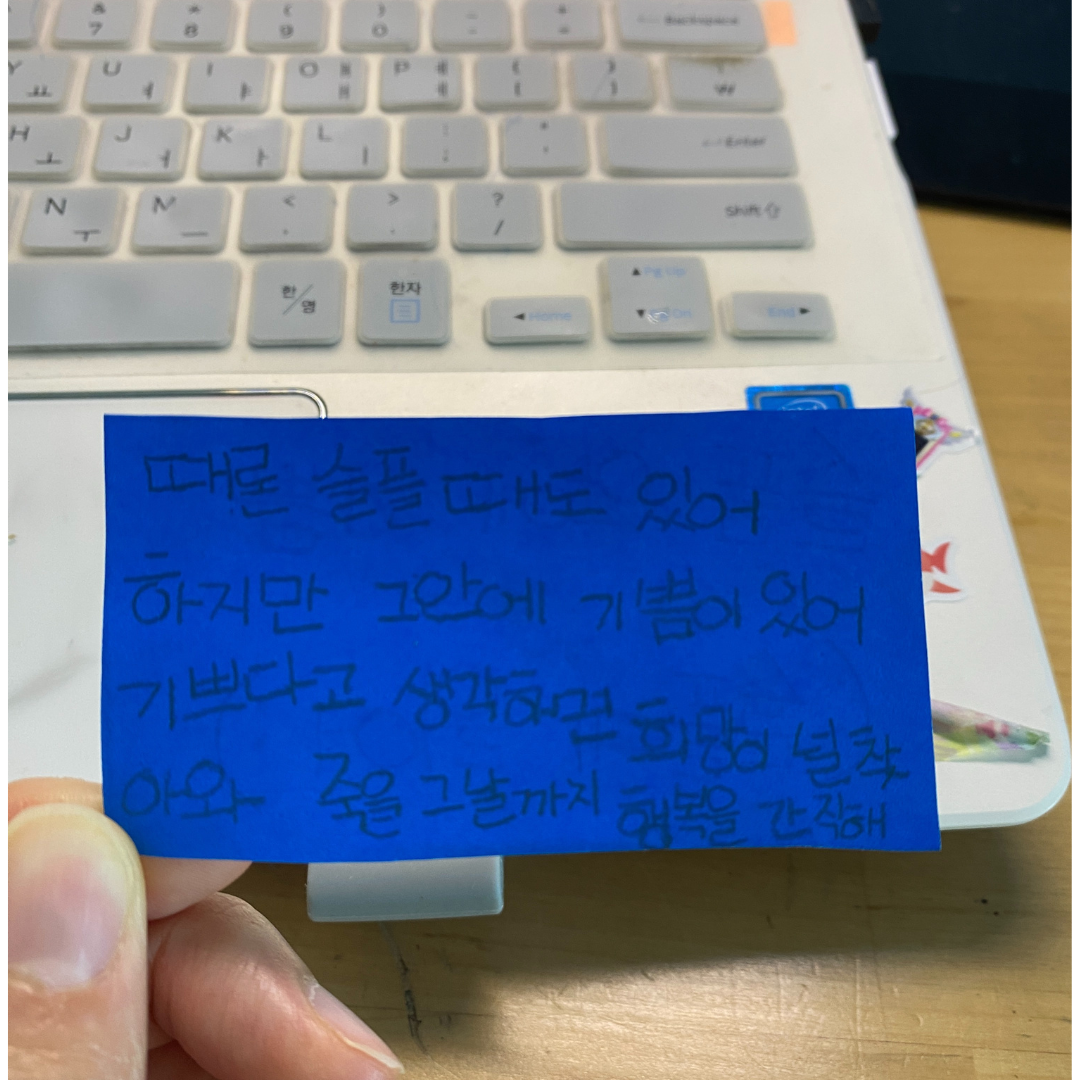 & 7 * 8 ( 9 ) 0 - + = ← Backspace
Y ㅛ U ㅕ I ㅑ O ㅐ P ㅔ { [ } ] W
H ㅗ J ㅓ K ㅏ L ㅣ : ; " ' ↵ Enter
N ㅜ M ㅡ < , > . ? / Shift ⇧
한/영 한자 ◀ Home ▲ Pg Up ▼ Pg Dn End ▶
때론 슬플 때도 있어
하지만 그안에 기쁨이 있어
기쁘다고 생각해란 희망이 널 찾
아와 죽을 그날까지 행복을 간직해